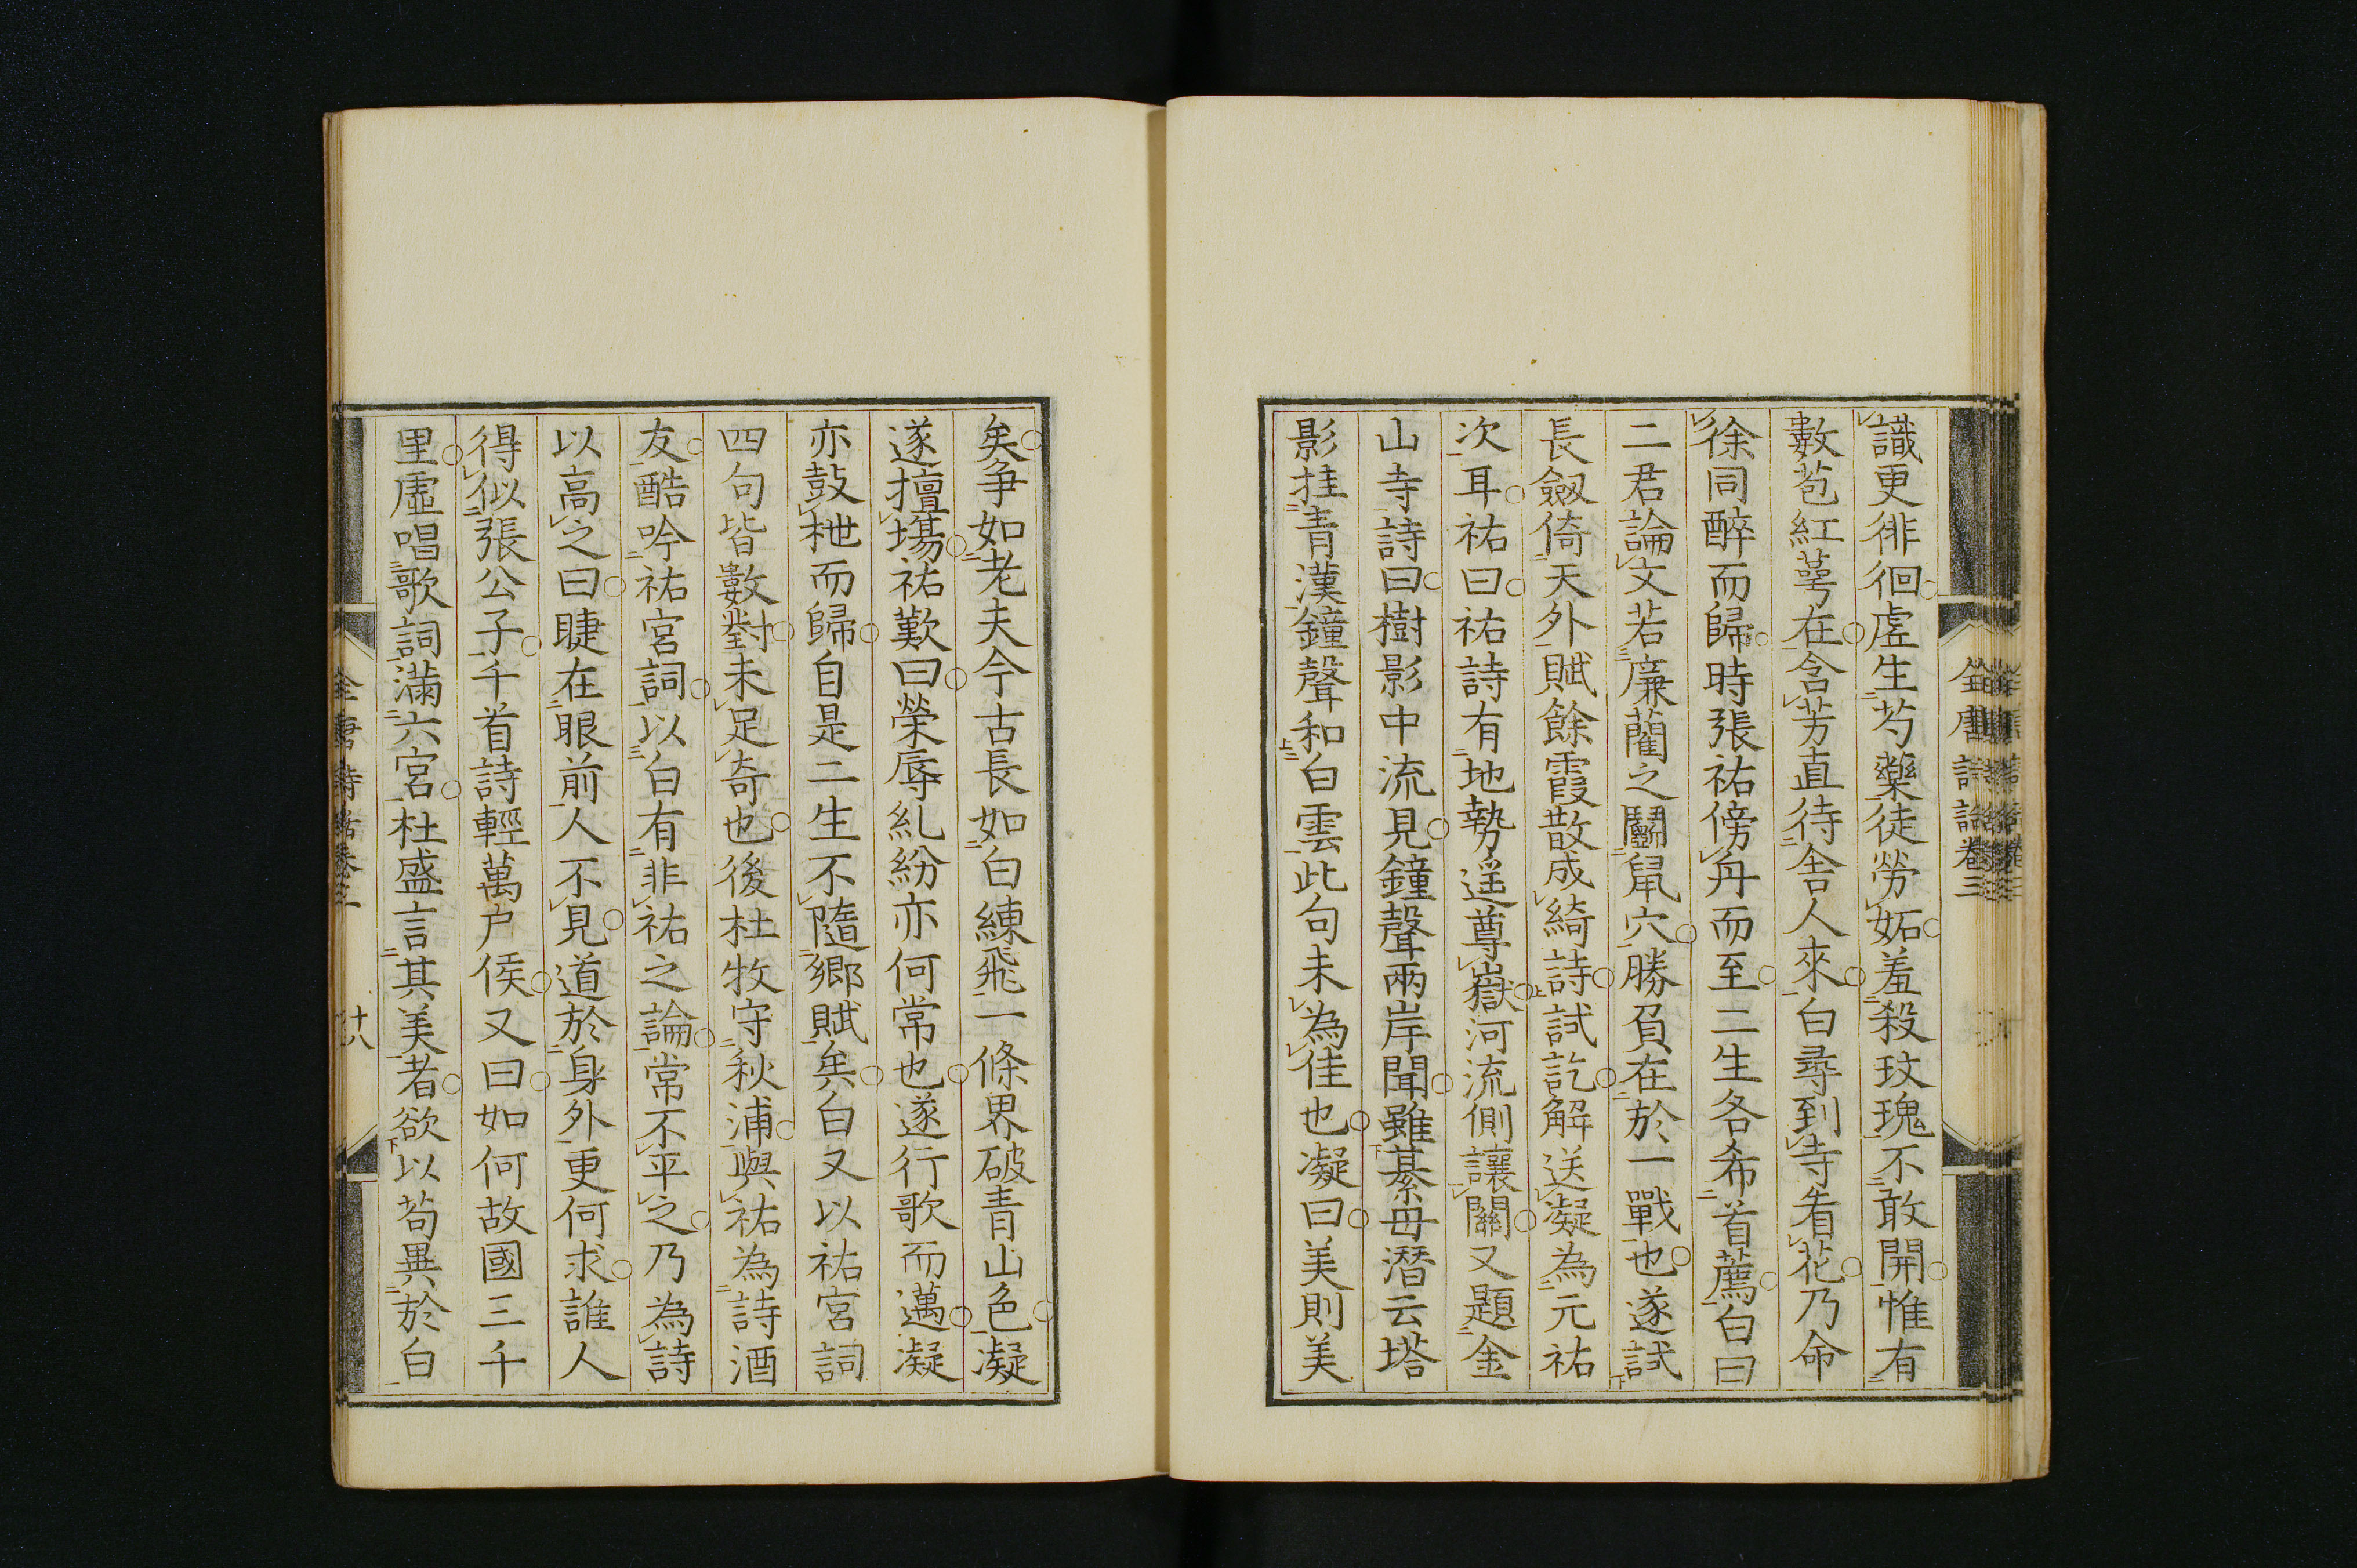 全唐詩話卷三
識更徘徊虛生芍藥徒勞妬羞殺玫瑰不敢開惟有
數苞紅萼在含芳直待舍人來白尋到寺看花乃命
徐同醉而歸時張祜傍舟而至二生各希首薦白曰
二君論文若廉藺之鬭鼠穴勝負在於一戰也遂試
長劔倚天外賦餘霞散成綺詩試訖解送凝為元祐
次耳祐曰祐詩有地勢遥尊嶽河流側讓關又題金
山寺詩曰樹影中流見鐘聲兩岸聞雖綦毋潛云塔
影挂青漢鐘聲和白雲此句未為佳也凝曰美則美
矣争如老夫今古長如白練飛一條界破青山色凝
遂擅場祐歎曰榮辱糺紛亦何常也遂行歌而邁凝
亦鼓枻而歸自是二生不隨鄉賦矣白又以祐宮詞
四句皆數對未足奇也後杜牧守秋浦與祐為詩酒
友酷吟祐宮詞以白有非祐之論常不平之乃為詩
以高之曰睫在眼前人不見道於身外更何求誰人
得似張公子千首詩輕萬户侯又曰如何故國三千
里虛唱歌詞滿六宮杜盛言其美者欲以苟異於白
全唐詩話卷三
十八